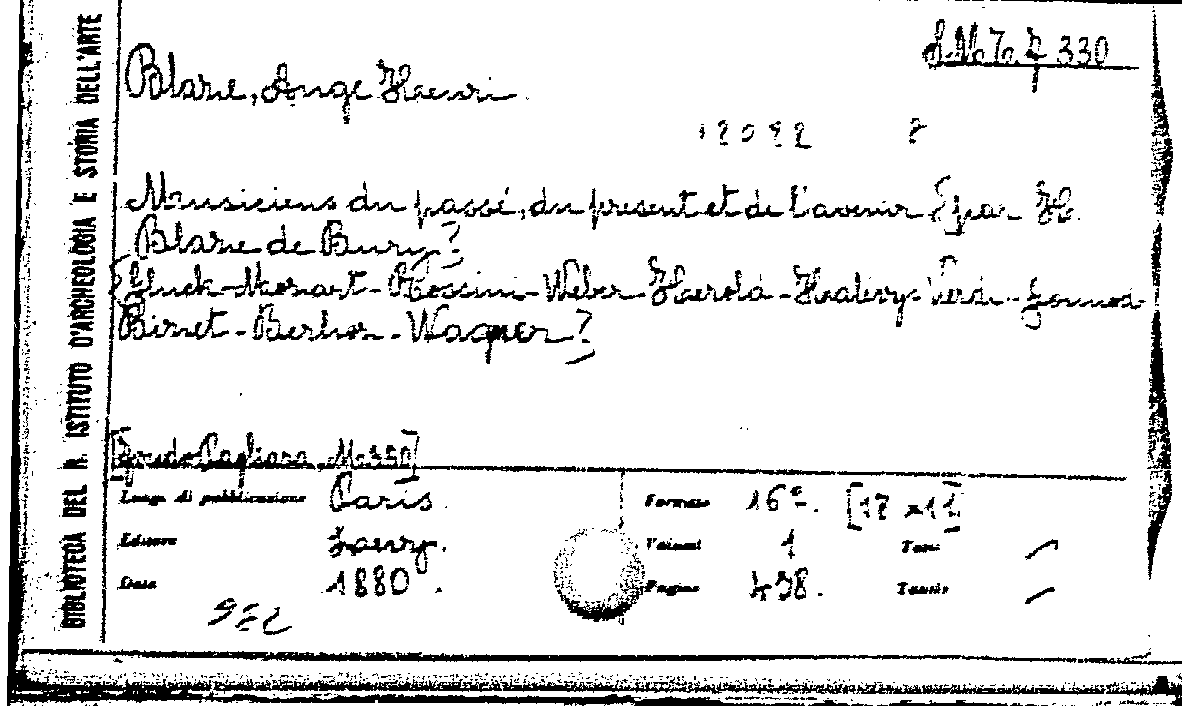 BIBLIOTECA DEL R. ISTITUTO D'ARCHEOLOGIA E STORIA DELL'ARTE
330
Blaze, Ange Henri
Musiciens du passé, du présent et de l'avenir [par H.
Blaze de Bury]
[Gluck-Mozart-Rossini-Weber-Herold-Halévy-Verdi-Gounod
Bizet-Berlioz-Wagner]
[Fondo Pagliara, M. 330]
Luogo di pubblicazione Paris. Formato 16°. [17 x 11]
Editore Laevy. Volumi 1 Tomi —
Data 1880. Pagine 438. Tavole —